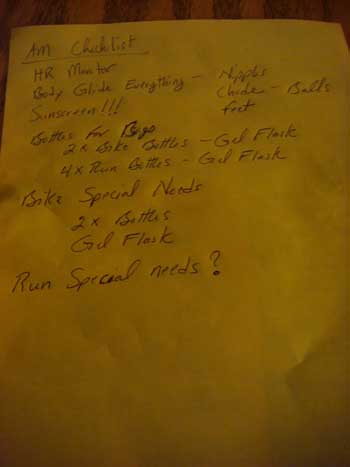 AM Checklist
HR Monitor
Body Glide Everything - Nipples
Chode - Balls
feet
Sunscreen!!!
Bottles For Bags
2x Bike Bottles - Gel Flask
4x Run Bottles - Gel Flask
Bike Special Needs
2x Bottles
Gel Flask
Run Special needs?